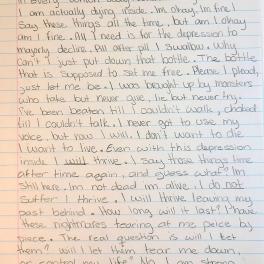 I am actually dying inside. Im okay, Im fine I
Say these things all the time, but am I okay
am I fine. All I need is for the depression to
majorly decline. Pill after pill I swallow. Why
can't I just put down that bottle. The bottle
that is supposed to set me free. Please I plead,
just let me be. I was brought up by monsters
who take but never give, lie but never try.
I've been beaten till I couldn't walk, choked
till I couldn't talk. I never got to use my
voice but now I will. I don't want to die
I want to live. Even with this depression
inside I will thrive. I say those things time
after time again, and guess what? Im
Still here. Im not dead im alive. I do not
Suffer I thrive. I will thrive leaving my
past behind. How long will it last? I have
these nightmares tearing at me peice by
piece. The real question is will I let
them? will I let them tear me down,
or control my life? No I am strong